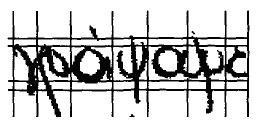 γράψαμε